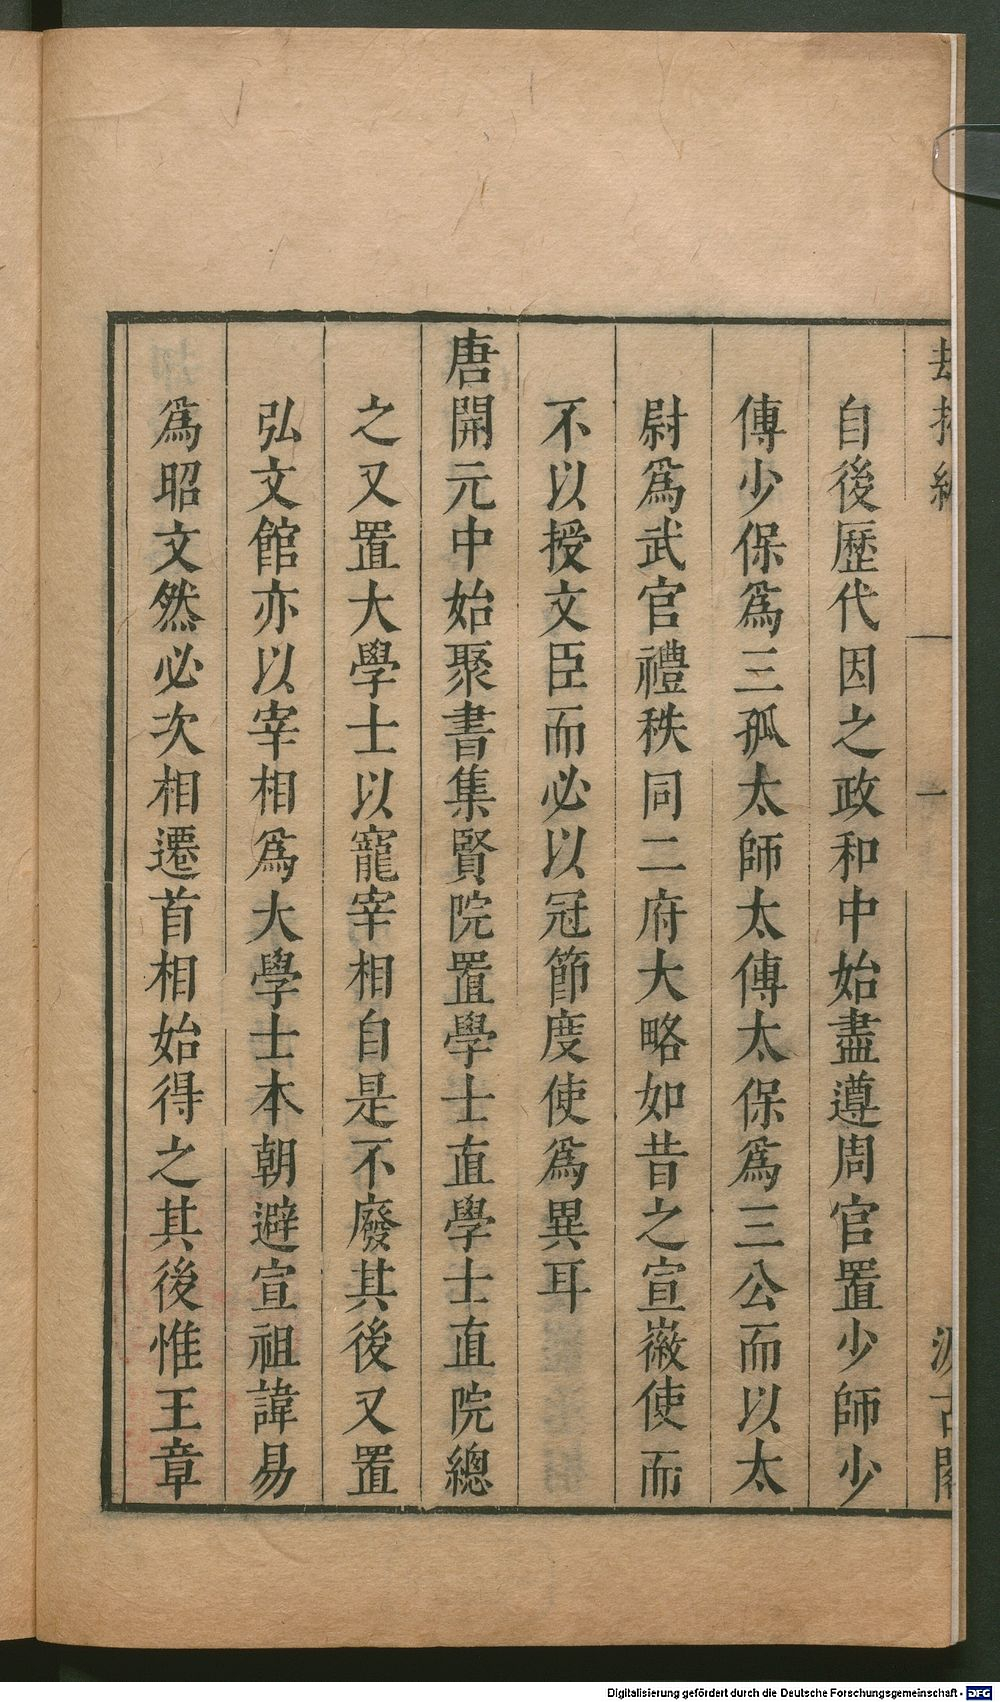 自後歷代因之政和中始盡遵周官置少師少
傅少保爲三孤太師太傅太保爲三公而以太
尉爲武官禮秩同二府大略如昔之宣徽使而
不以授文臣而必以冠節度使爲異耳
唐開元中始聚書集賢院置學士直學士直院總
之又置大學士以寵宰相自是不廢其後又置
弘文館亦以宰相爲大學士本朝避宣祖諱易
爲昭文然必次相遷首相始得之其後惟王章
一
Digitalisierung gefördert durch die Deutsche Forschungsgemeinschaft - DFG